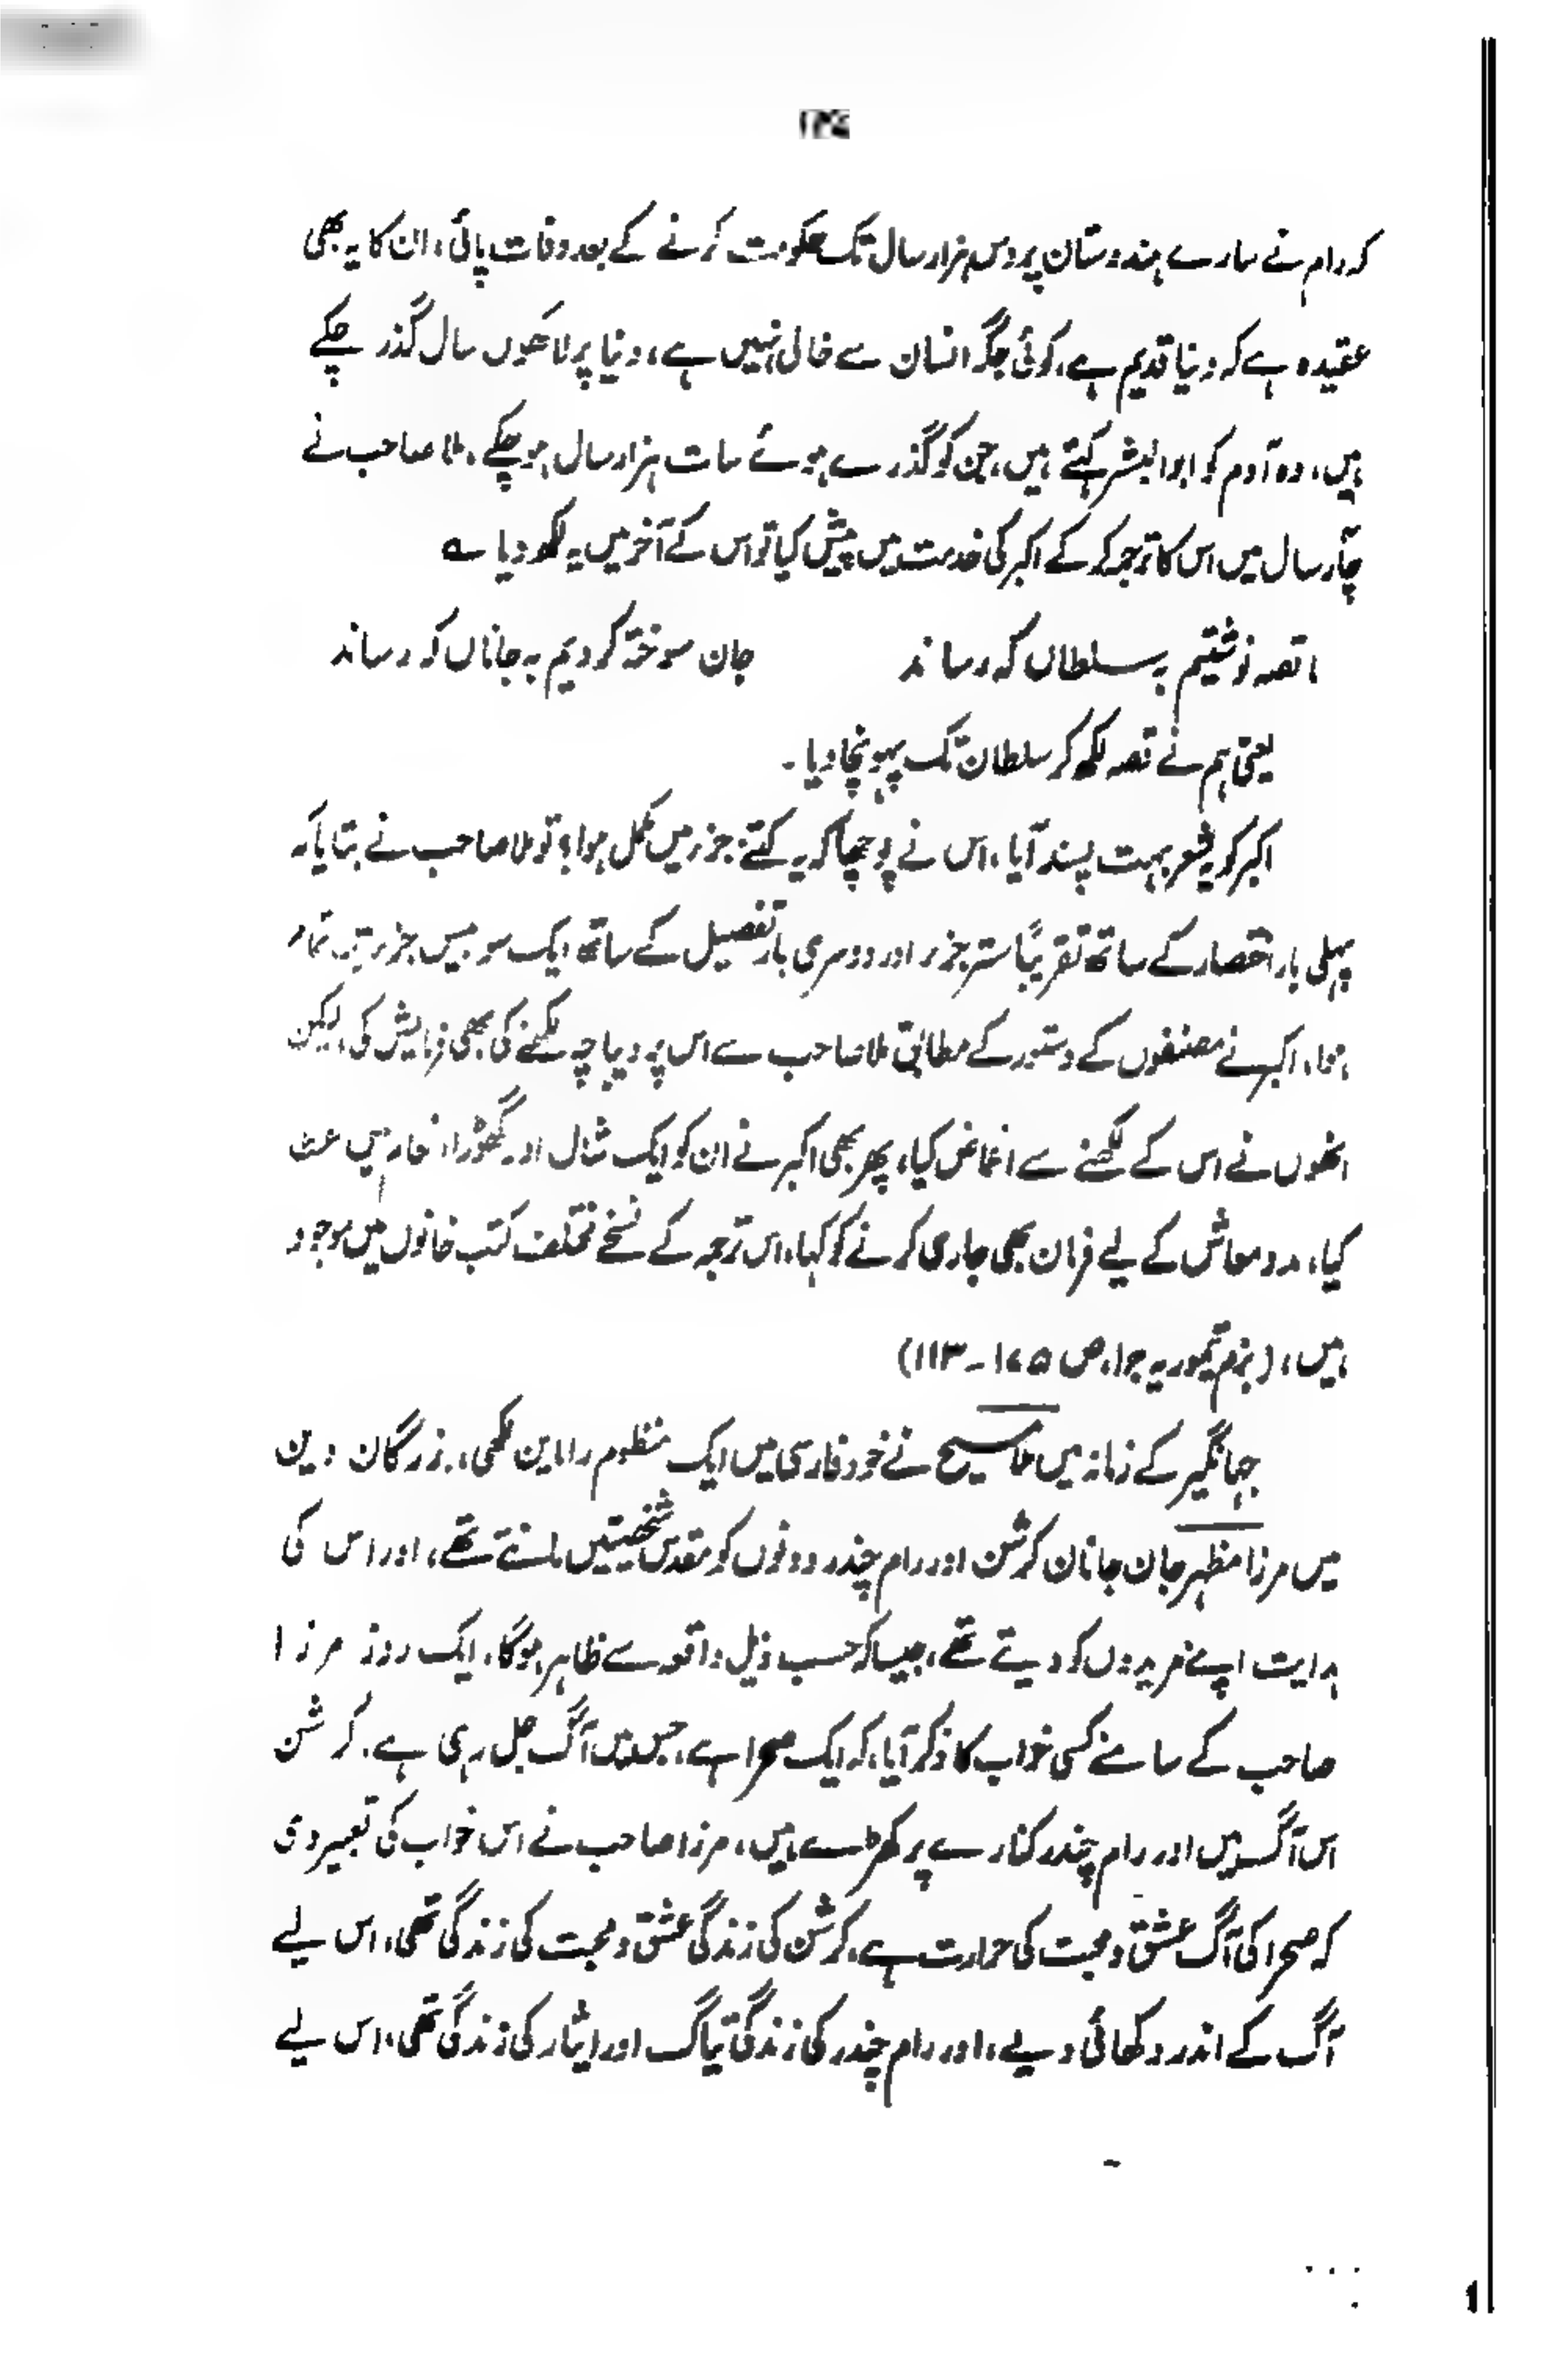 کہ رام نے سارے ہندوستان پر دس ہزار سال تک حکومت کرنے کے بعد وفات پائی، ان کا یہ بھی
عقیدہ ہے کہ دنیا قدیم ہے، کوئی جگہ انسان سے خالی نہیں ہے، دنیا پر لاکھوں سال گذر چکے
ہیں، وہ آدم کو ابوالبشر کہتے ہیں، جن کو گذرے ہوئے سات ہزار سال ہو چکے، ملا صاحب نے
چار سال میں اس کا ترجمہ کر کے اکبر کی خدمت میں پیش کیا تو اس کے آخر میں یہ لکھ دیا ؎
ما قصہ نوشتیم بہ سلطاں کہ رساند جان سوختہ کردیم بہ جاناں کہ رساند
یعنی ہم نے قصہ لکھ کر سلطان تک پہونچا دیا۔
اکبر کو یہ شعر بہت پسند آیا، اس نے پوچھا کہ یہ کتنے جزر میں مکمل ہوا؟ تو ملا صاحب نے بتایا کہ
پہلی بار اختصار کے ساتھ تقریباً ستر جزر اور دوسری بار تفصیل کے ساتھ ایک سو بیس جزر میں تمام
ہوا، اکبر نے مصنفوں کے دستور کے مطابق ملا صاحب سے اس پر دیباچہ لکھنے کی بھی فرمایش کی، لیکن
انھوں نے اس کے لکھنے سے اغماض کیا، پھر بھی اکبر نے ان کو ایک شال اور گھوڑا انعام میں عطا
کیا، مدد معاش کے لیے فرمان بھی جاری کرنے کو کہا، اس ترجمہ کے نسخے مختلف کتب خانوں میں موجود
ہیں، (بزم تیموریہ ج ۱، ص ۱۷۵-۱۱۳)
جہانگیر کے زمانہ میں ملا مسیح نے خود فارسی میں ایک منظوم راماین لکھی، بزرگان دین
میں مرزا مظہر جان جانان کرشن اور رام چندر دونوں کو مقدس شخصیتیں مانتے تھے، اور اس کی
ہدایت اپنے مریدوں کو دیتے تھے، جیسا کہ حسب ذیل واقعہ سے ظاہر ہوگا، ایک روز مرزا
صاحب کے سامنے کسی خواب کا ذکر آیا، کہ ایک صحرا ہے، جس میں آگ جل رہی ہے، کرشن
اس آگ میں اور رام چندر کنارے پر کھڑے ہیں، مرزا صاحب نے اس خواب کی تعبیر دی
کہ صحرا کی آگ عشق و محبت کی حرارت ہے، کرشن کی زندگی عشق و محبت کی زندگی تھی، اس لیے
آگ کے اندر دکھائی دیے، اور رام چندر کی زندگی تیاگ اور ایثار کی زندگی تھی، اس لیے